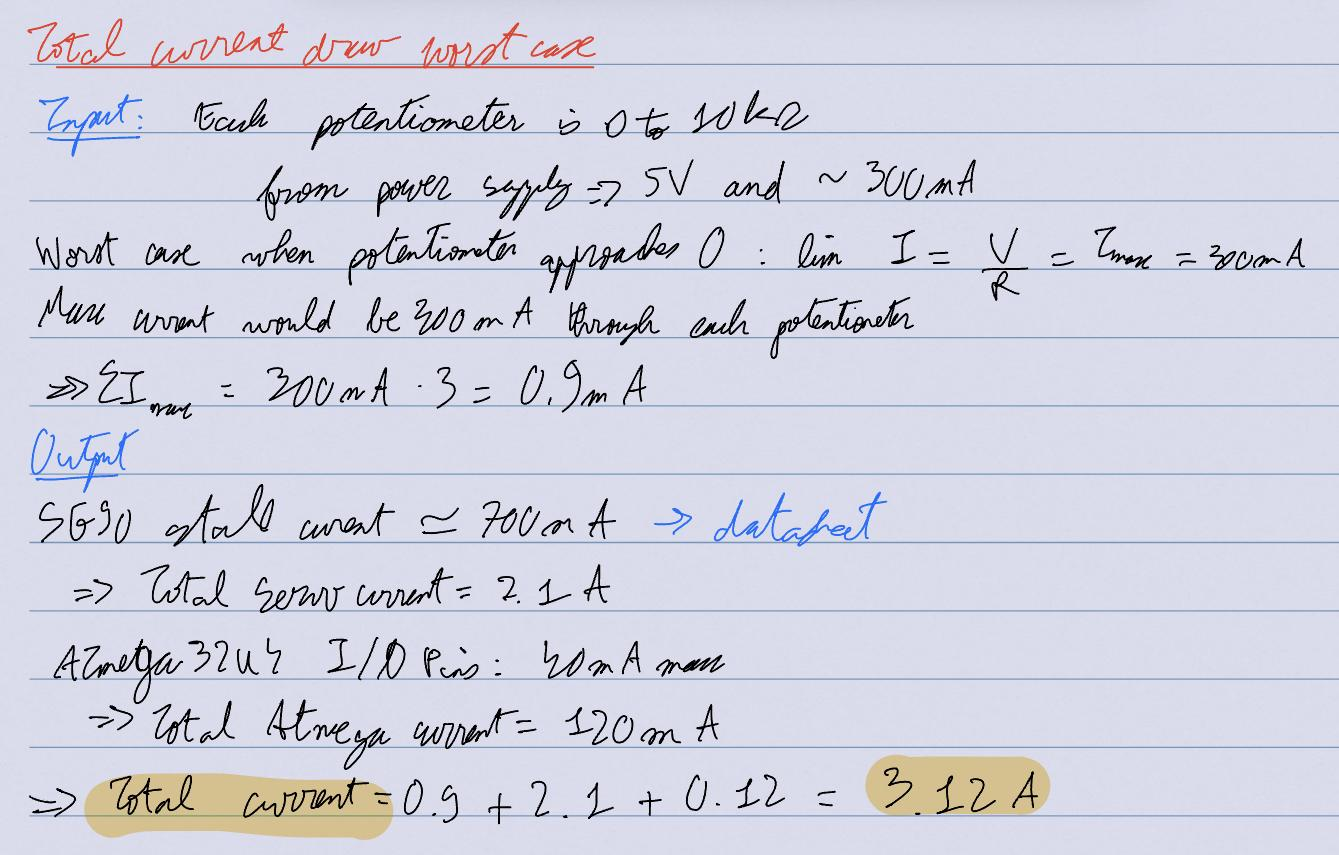 Total current draw worst case
Input: Each potentiometer is 0 to 10kΩ
from power supply => 5V and ~ 300mA
Worst case when potentiometer approaches 0 : lim I = V/R = Imax = 300mA
Max current would be 300mA through each potentiometer
=> ΣImax = 300mA · 3 = 0.9mA
Output
SG90 stall current ≃ 700mA → datasheet
=> Total Servo current = 2.1 A
ATmega32U4 I/O Pins: 40mA max
=> Total Atmega current = 120mA
=> Total current = 0.9 + 2.1 + 0.12 = 3.12 A